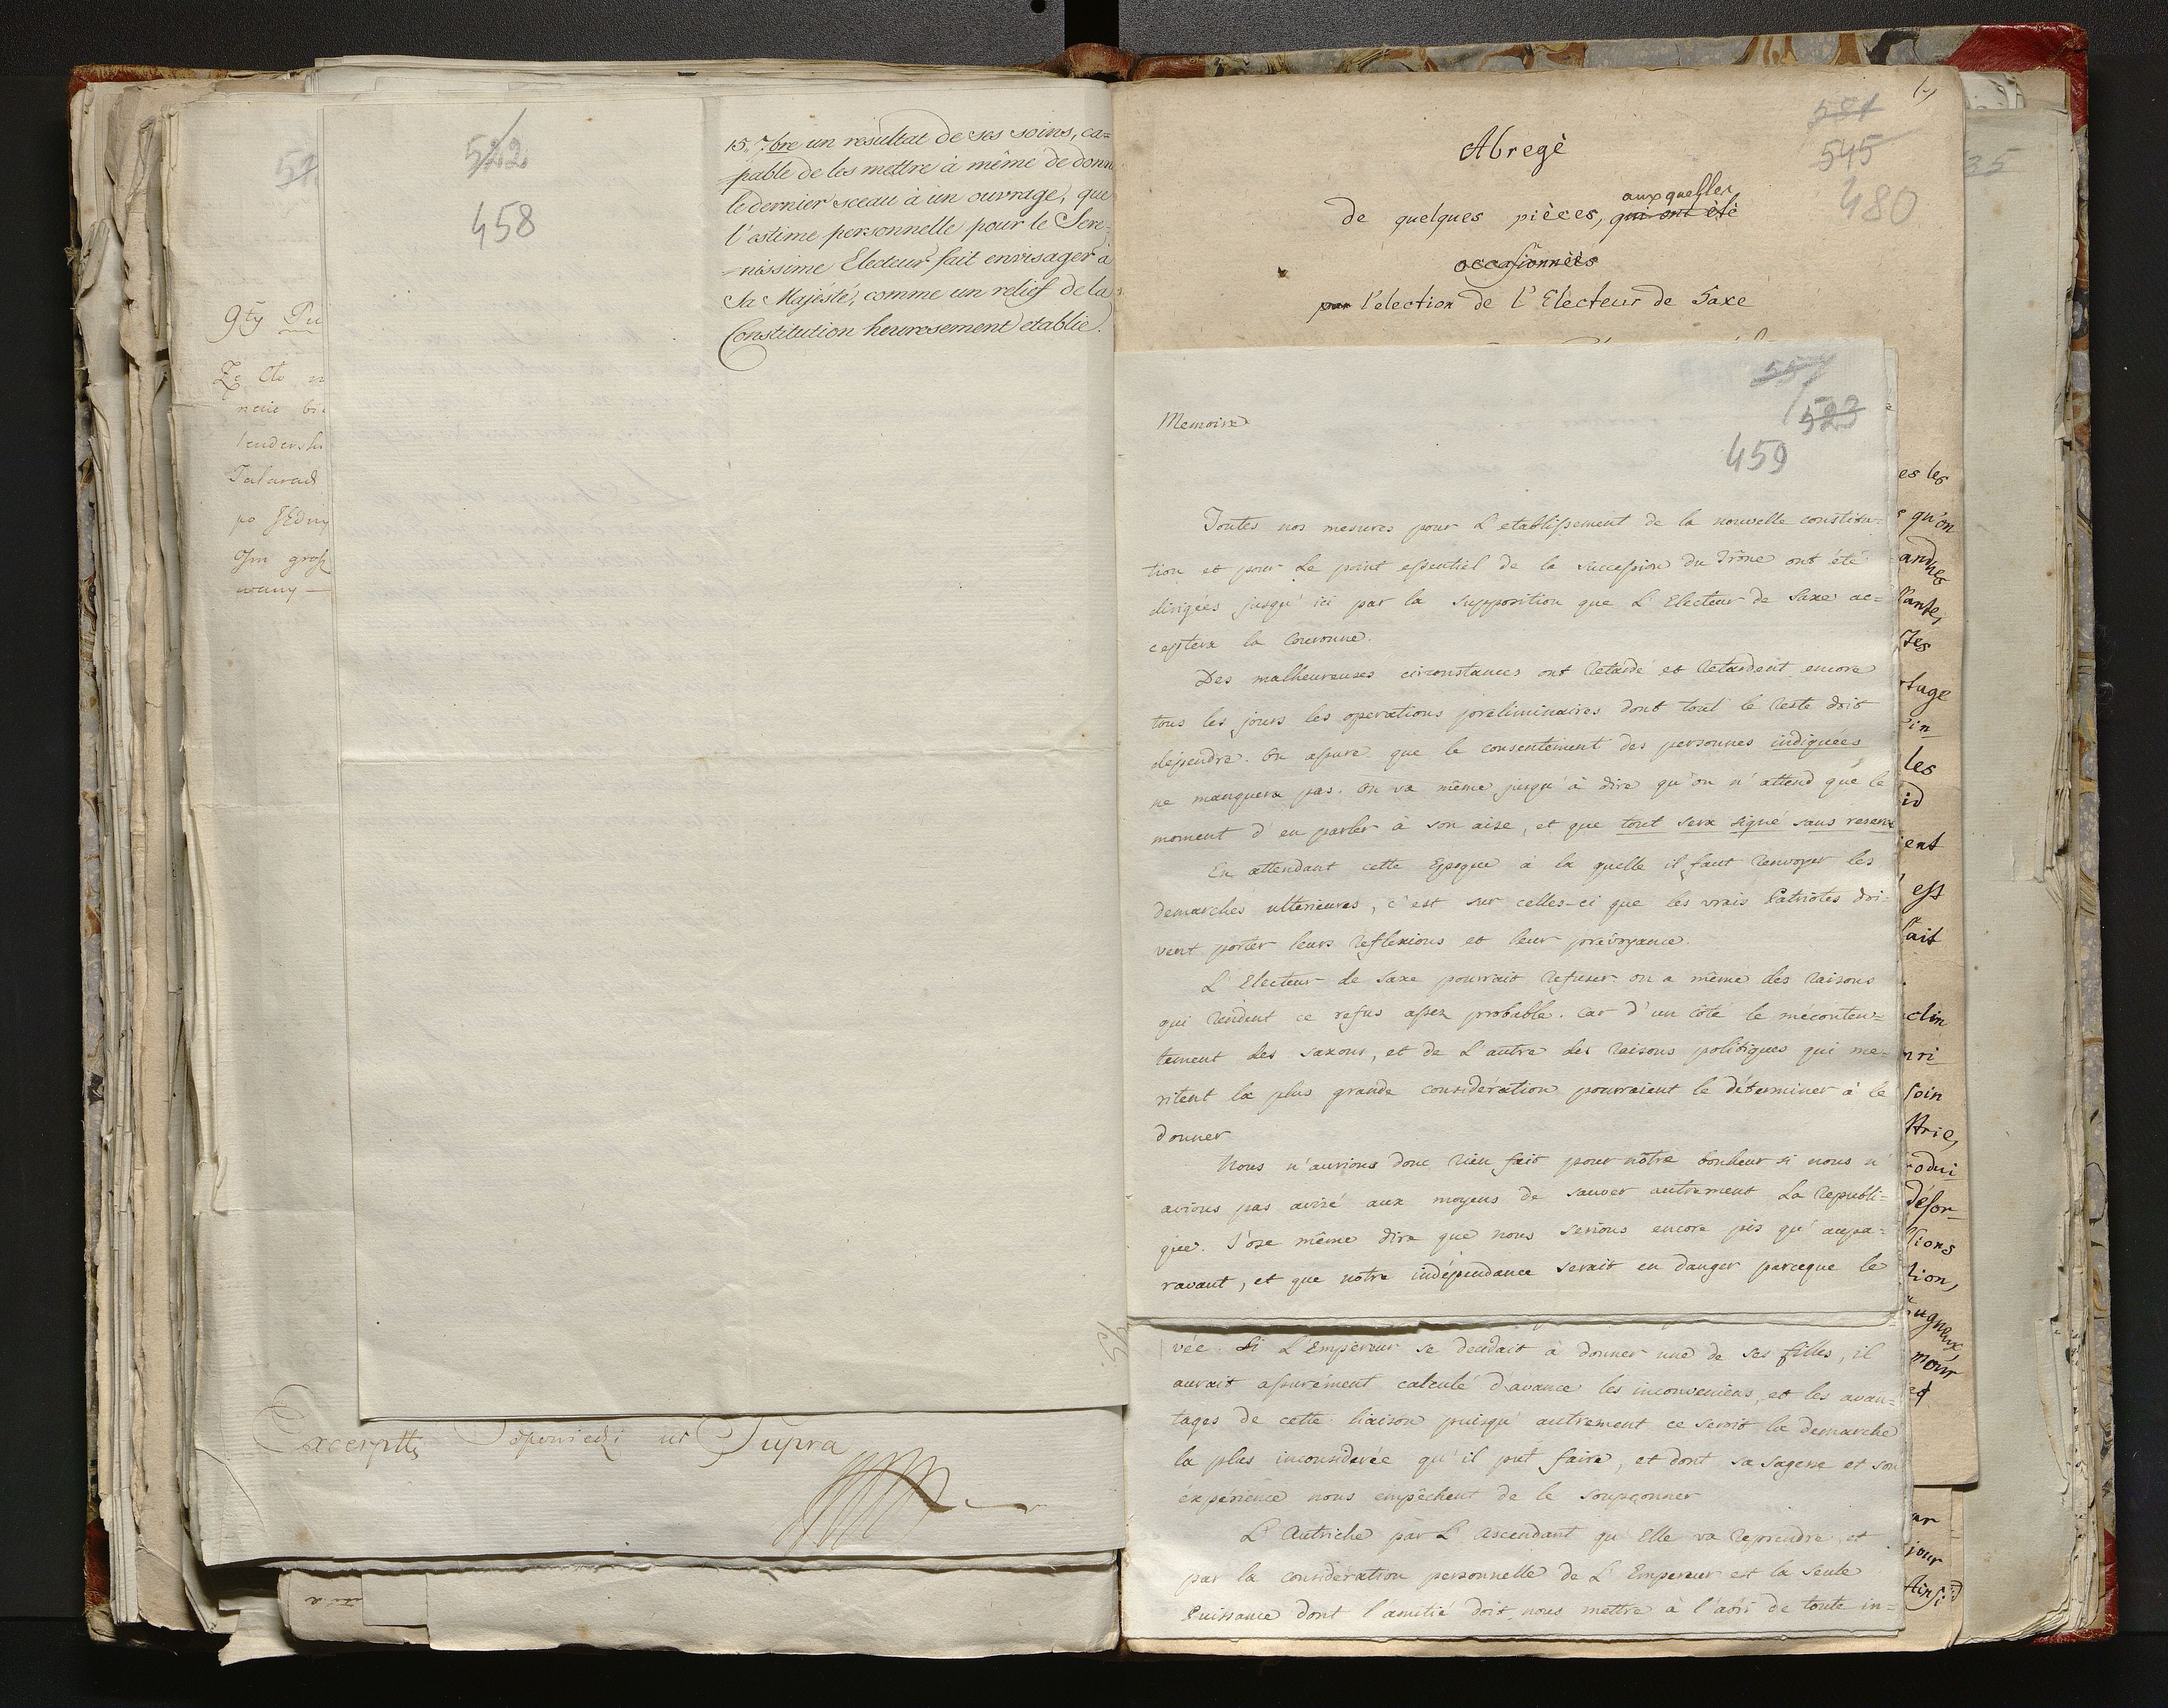 522
458
15. 7bre un resultat de ses soins, ca=
pable de les mettre à même de donn
le dernier sceau à un ouvrage, que
l'estime personnelle pour le Sere=
nissime Electeur fait envisager à
Sa Majesté, comme un relief de la
Constitution heureusement etablie.
9ty
Ze Cto
neić
po JEdny
Osm
wany —
Excerptt ut Supra
Abregè
de quelques pièces, qui ont étè
auxquelles
occasionnées
par l'election de l'Electeur de Saxe
545
480
35
Memoire
523
459
Toutes nos mesures pour L'etablissement de la nouvelle constitu=
tion et pour Le point essentiel de la succession du Trône ont été
dirigées jusqu'ici par la supposition que L'Electeur de Saxe ac=
ceptera la Couronne.
Des malheureuses circonstances ont retardé et retardent encore
tous les jours les operations préliminaires dont tout le reste doit
dépendre. On assure que le consentement des personnes indiquées
ne manquera pas. On va même jusqu'à dire qu'on n'attend que le
moment d'en parler à son aise, et que tout sera signé sans reserve
En attendant cette Epoque à la quelle il faut renvoyer les
demarches ulterieures, c'est sur celles-ci que les vrais Patriotes doi=
vent porter leurs reflexions et leur prévoyance.
L'Electeur de Saxe pourrait refuser on a même des raisons
qui rendent ce refus assez probable. Car d'un côté le méconten=
tement des Saxons, et de L'autre des raisons politiques qui me=
ritent la plus grande consideration pourraient le déterminer à le
donner
Nous n'aurions donc rien fait pour nôtre bonheur si nous n'
avions pas avisé aux moyens de sauver autrement La republi=
que. J'ose même dire que nous serions encore pis qu'aupa=
ravant, et que notre indépendance serait en danger parceque le
vée Si L'Empereur se decidait à donner une de ses filles, il
aurait assurément calculé d'avance les inconveniens et les avan=
tages de cette liaison puisqu'autrement ce seroit la demarche
la plus inconsiderée qu'il put faire, et dont sa sagesse et son
éxpérience nous empêchent de le soupçonner
L'Autriche par L'ascendant qu'Elle va reprendre et
par la consideration personnelle de L'Empereur est la seule
Puissance dont l'amitié doit nous mettre à l'abri de toute in=
es les
qu'on
les
id
est
fait
clin
soin
défor-
tion,
mour
jour